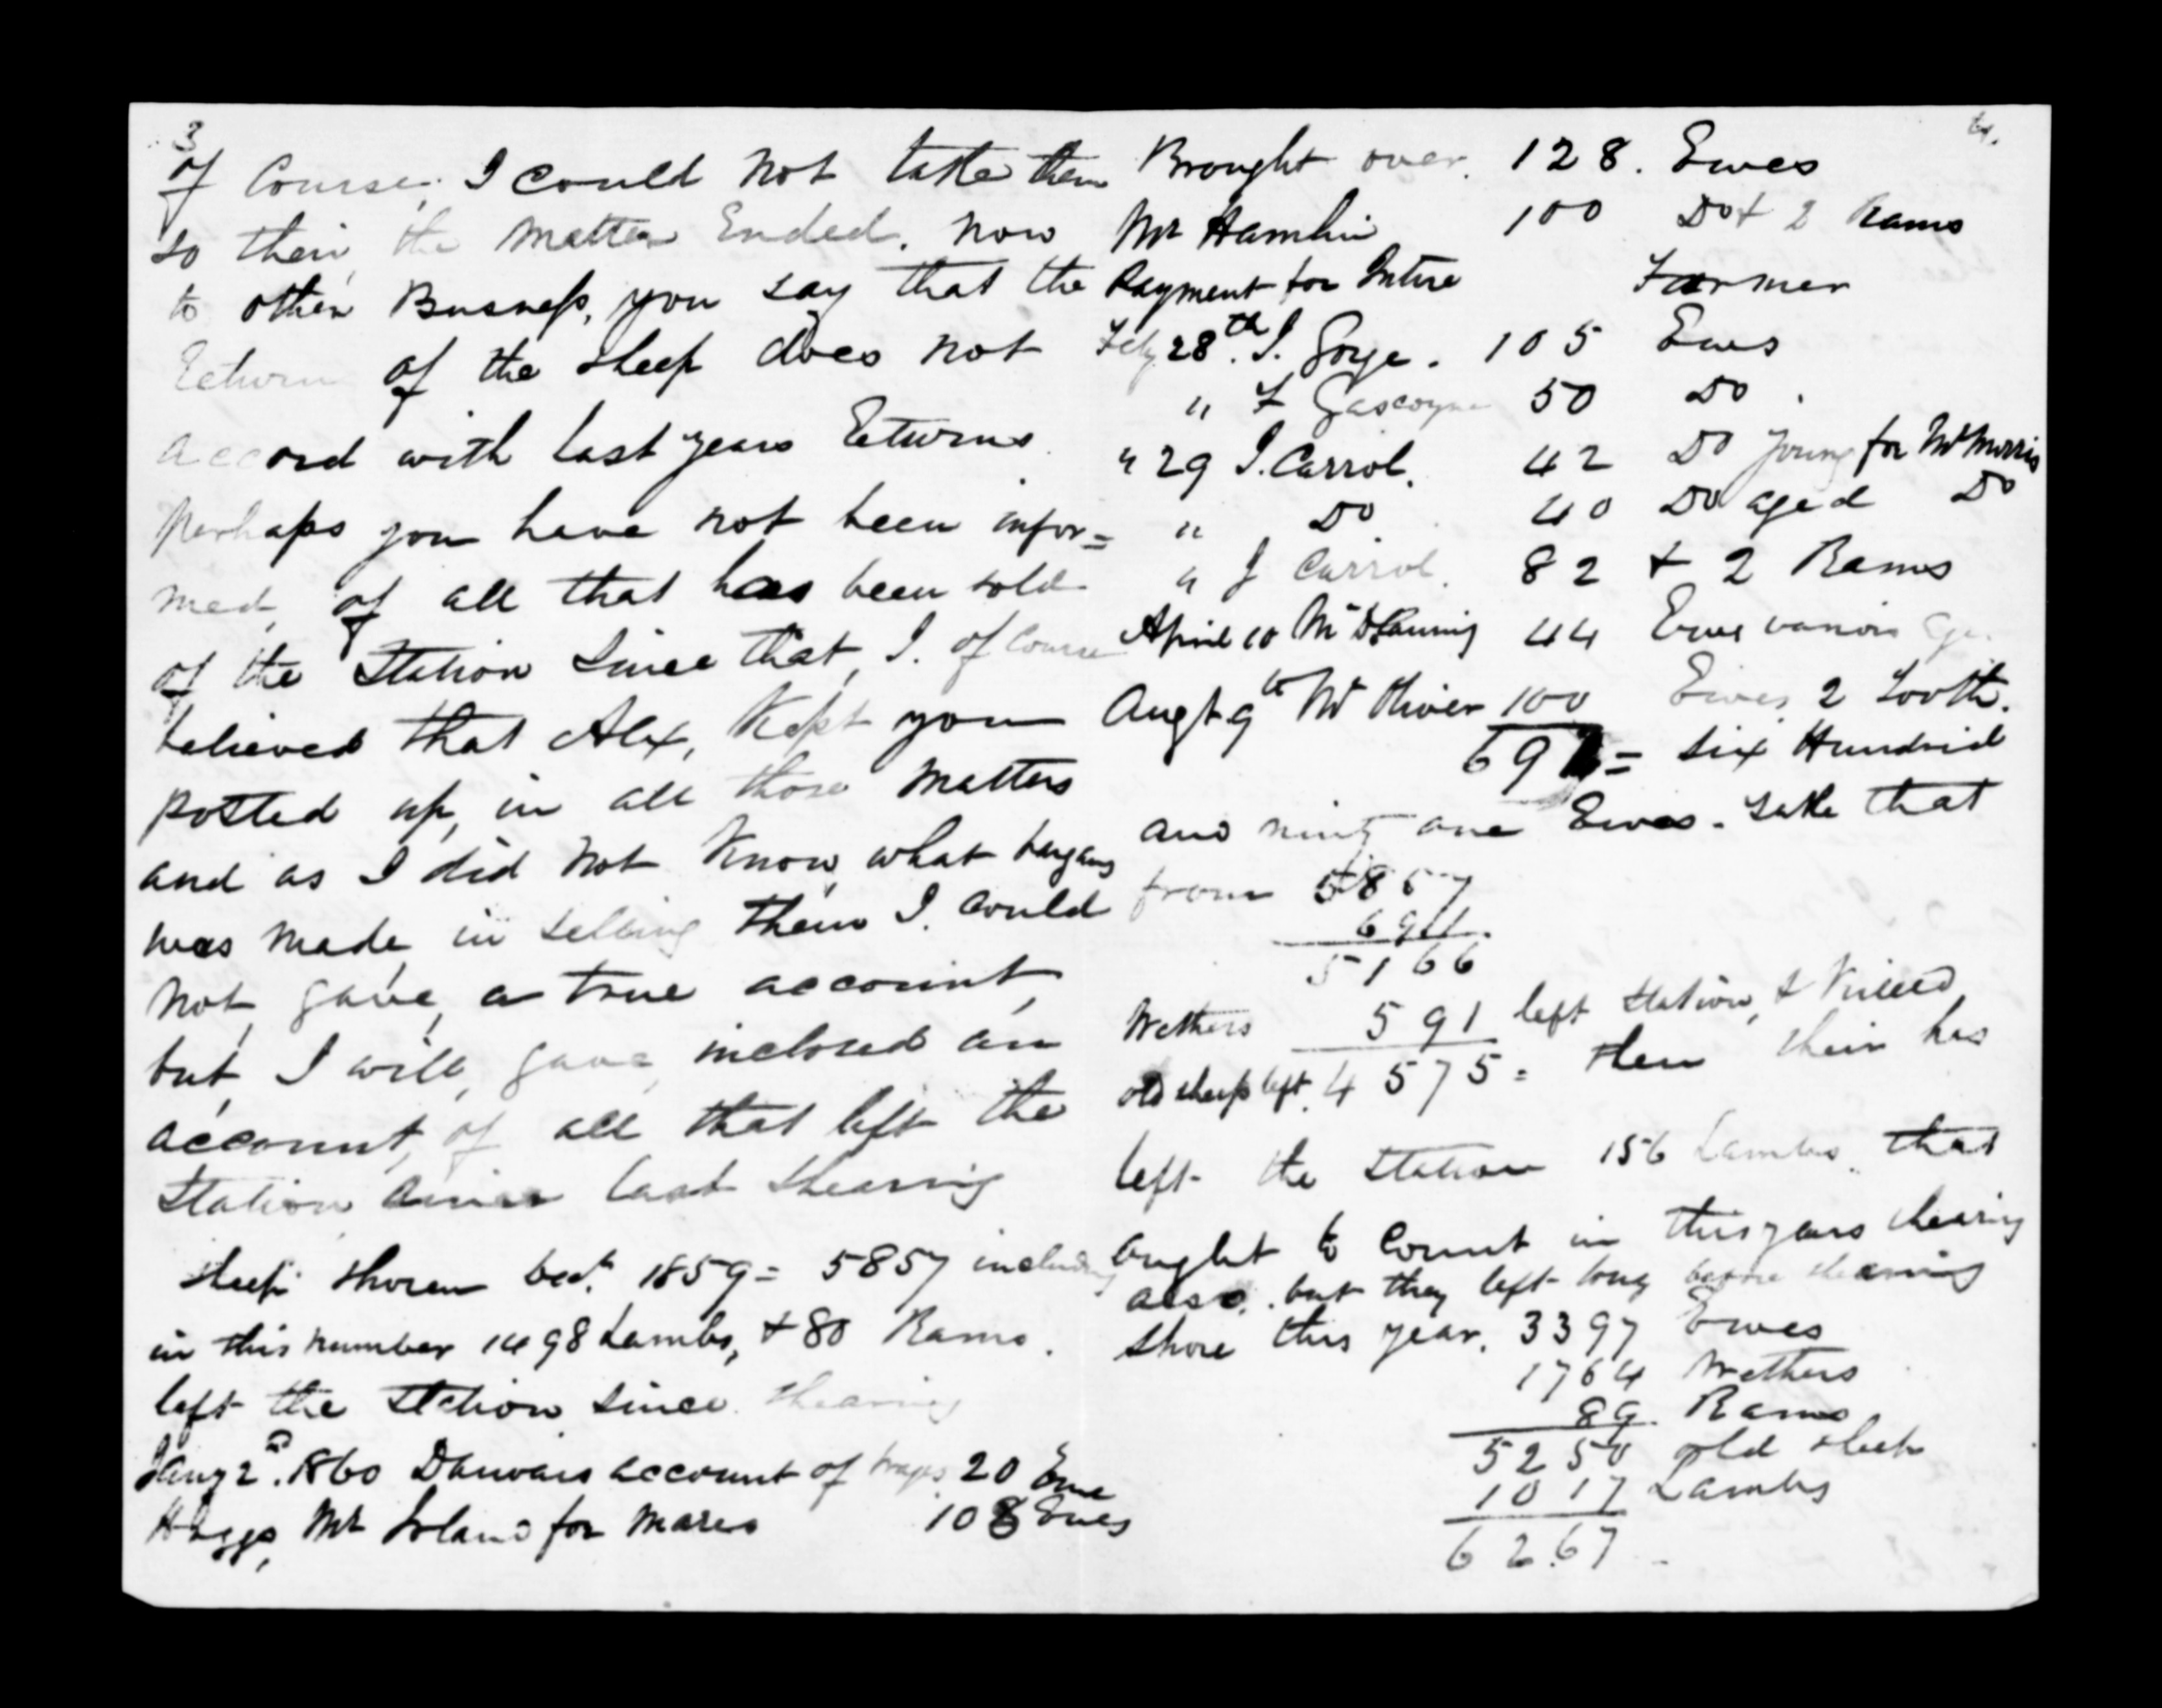 3
of Course, I could not take them
so their, the matter Ended. now
to other Busness, you say that the
Return of the sheep does not
accord with last years Returns
Perhaps you have not been infor=
med, of all that has been sold
of the Station Since that, I. of Course
believed that Alex, Kept you
posted up, in all those matters
and as I did not Know what
was made, in selling them I. Could
not, gave, a true account,
but, I will, gave, inclosed an
account, of all that left the
Station last shearing
sheep shoren 1859 = 5857 including
in this number 1498 Lambs, + 80 Rams.
left the Station since shearing
Jany 2nd. 1860 account of 20 Ewe
Mr for Mares 108 Ewes
4.
Brought over. 128. Ewes
Mr Hamlin 100 Do + 2 Rams
Payment for Intire Farmer
Feby 28th. J. Goye. 105 Ewes
" F Gascoyne 50 Do.
" 29 J. Carrol. 42 Do young for Mr Morris
" Do 40 Do aged Do
" J Carrol. 82 + 2 Rams
April 10 44 Ewes various
Augt 9th Mr Oliver 100 Ewes, 2 Tooth.
691 = Six Hundrid
and ninty one Ewes - Take that
from 5857
691.
5166
Wethers 591 left Station, & Killed
old sheep left. 4575 = then their has
left the Station 156 Lambs. that
ought to Count in this years shearing
also, but they left long before shearing
Shore this year. 3397 Ewes
1764 Wethers
89. Rams
5250 old sheep
1017 Lambs
6267